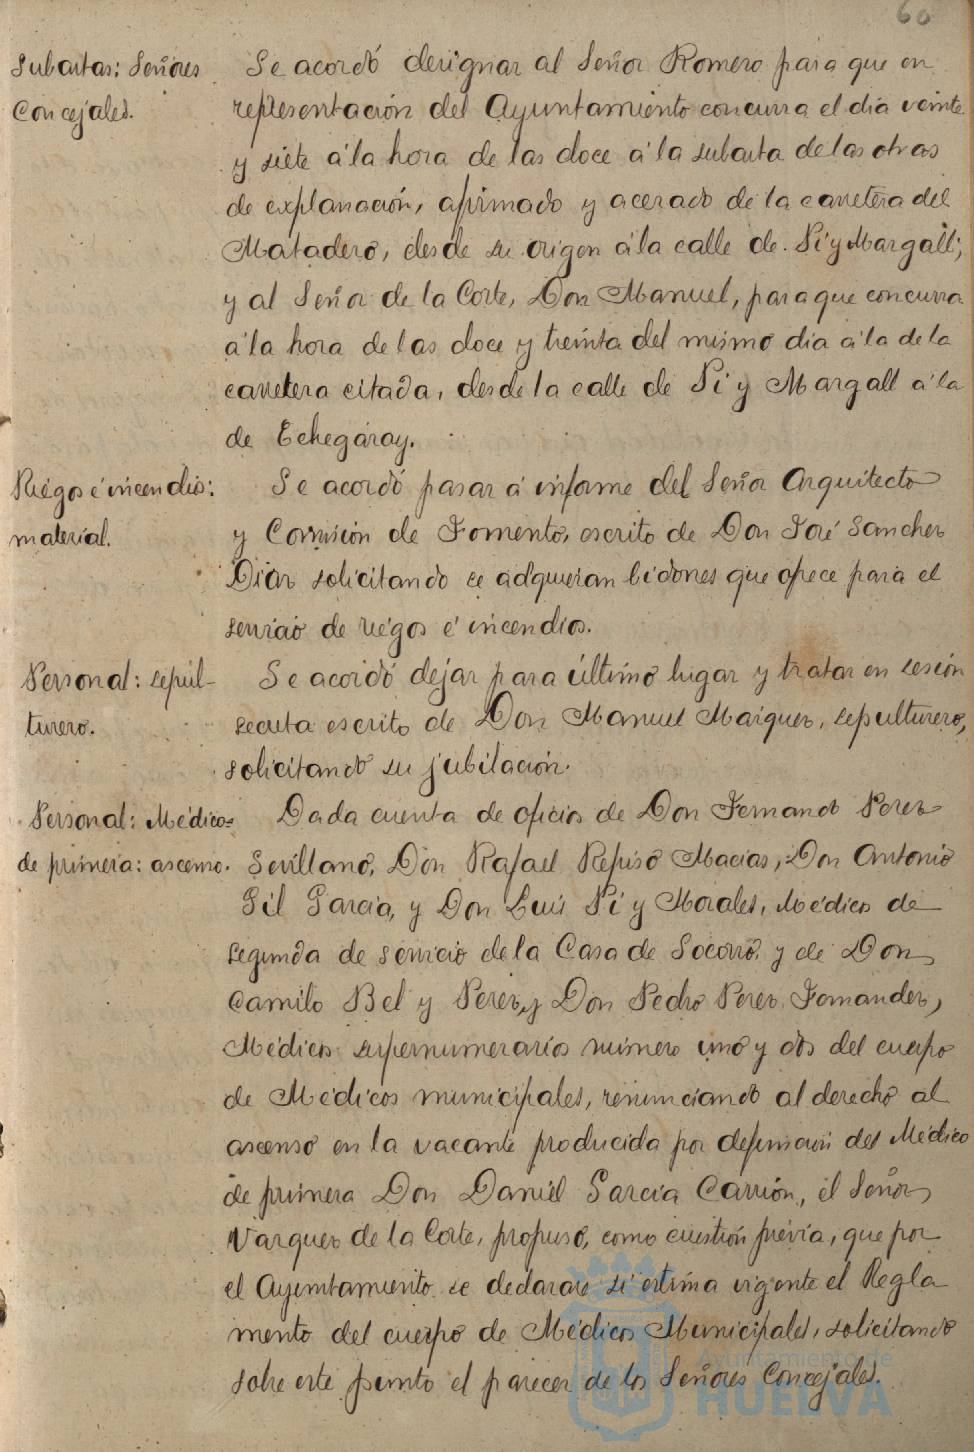 60
Subastas: Señores
Concejales.
Se acordó designar al Señor Romero para que en
representación del Ayuntamiento concurra el día veinte
y siete á la hora de las doce á la subasta de las obras
de explanación, afirmado y acerado de la carretera del
Matadero, desde su origen á la calle de Pi y Margall;
y al Señor de la Corte, Don Manuel, para que concurra
á la hora de las doce y treinta del mismo dia á la de la
carretera citada, desde la calle de Pi y Margall á la
de Echegaray.
Riegos é incendios:
material.
Se acordó pasar á informe del Señor Arquitecto
y Comisión de Fomento, escrito de Don José Sanchez
Diaz solicitando se adquieran bidones que ofrece para el
servicio de riegos é incendios.
Personal: sepul-
turero.
Se acordó dejar para último lugar y tratar en sesión
secreta escrito de Don Manuel Marquez, sepulturero,
solicitando su jubilación.
Personal: Médicos
de primera: ascenso.
Dada cuenta de oficios de Don Fernando Perez
Sevillano, Don Rafael Repiso Macias, Don Antonio
Gil Garcia, y Don Luis Pi y Morales, Médicos de
segunda de servicio de la Casa de Socorro, y de Don
Camilo Bel y Perez, y Don Pedro Perez Fernandez,
Médicos supernumerarios número uno y dos del cuerpo
de Médicos municipales, renunciando al derecho al
ascenso en la vacante producida por defunción del Médico
de primera Don Daniel Garcia Carrión, el Señor
Vazquez de la Corte, propuso, como cuestión previa, que por
el Ayuntamiento se declarase si estima vigente el Regla
mento del cuerpo de Médicos Municipales, solicitando
sobre este punto el parecer de los Señores Concejales.
Ayuntamiento de
HUELVA